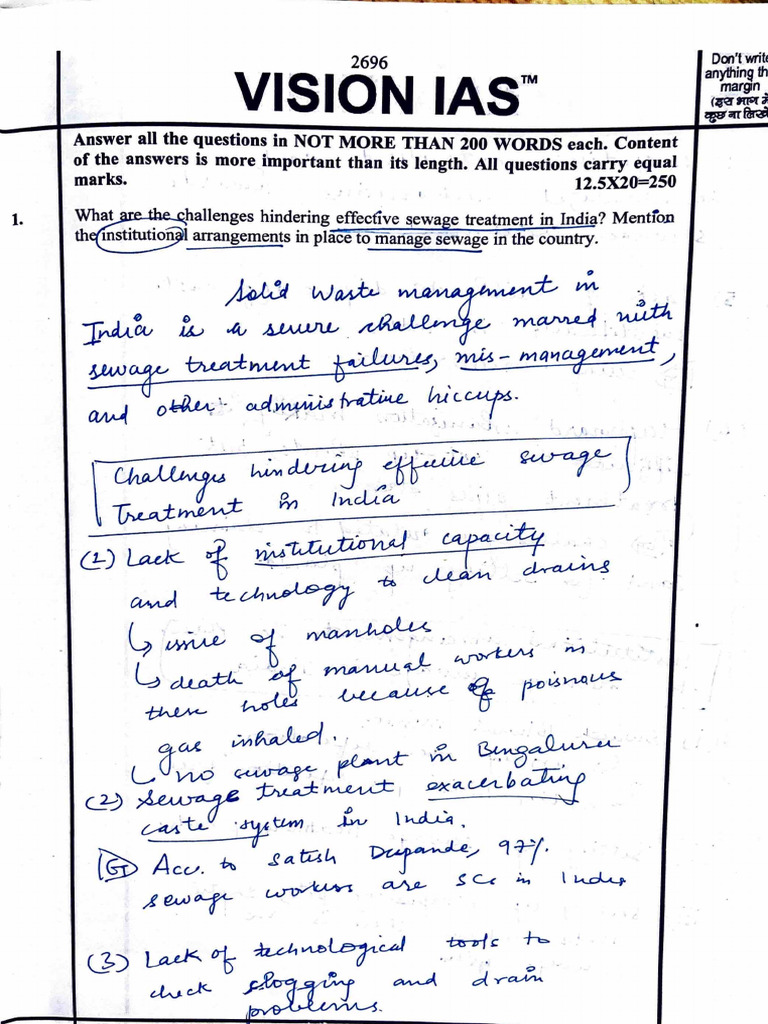 2696
VISION IAS™
Don't write
anything th
margin
(इस भाग में
कुछ ना लिखें
Answer all the questions in NOT MORE THAN 200 WORDS each. Content
of the answers is more important than its length. All questions carry equal
marks. 12.5X20=250
1. What are the challenges hindering effective sewage treatment in India? Mention
the institutional arrangements in place to manage sewage in the country.
Solid Waste management in
India is a severe challenge marred with
sewage treatment failures, mis-management,
and other administrative hiccups.
Challenges hindering effective sewage
Treatment in India
(1) Lack of institutional capacity
and technology to clean drains
↳ issue of manholes
↳ death of manual workers in
these holes because of poisnous
gas inhaled.
↳ no sewage plant in Bengaluru
(2) Sewage treatment exacerbating
caste system in India.
Acc. to Satish Depande, 97%
sewage workers are SCs in India
(3) Lack of technological tools to
check slogging and drain
problems.